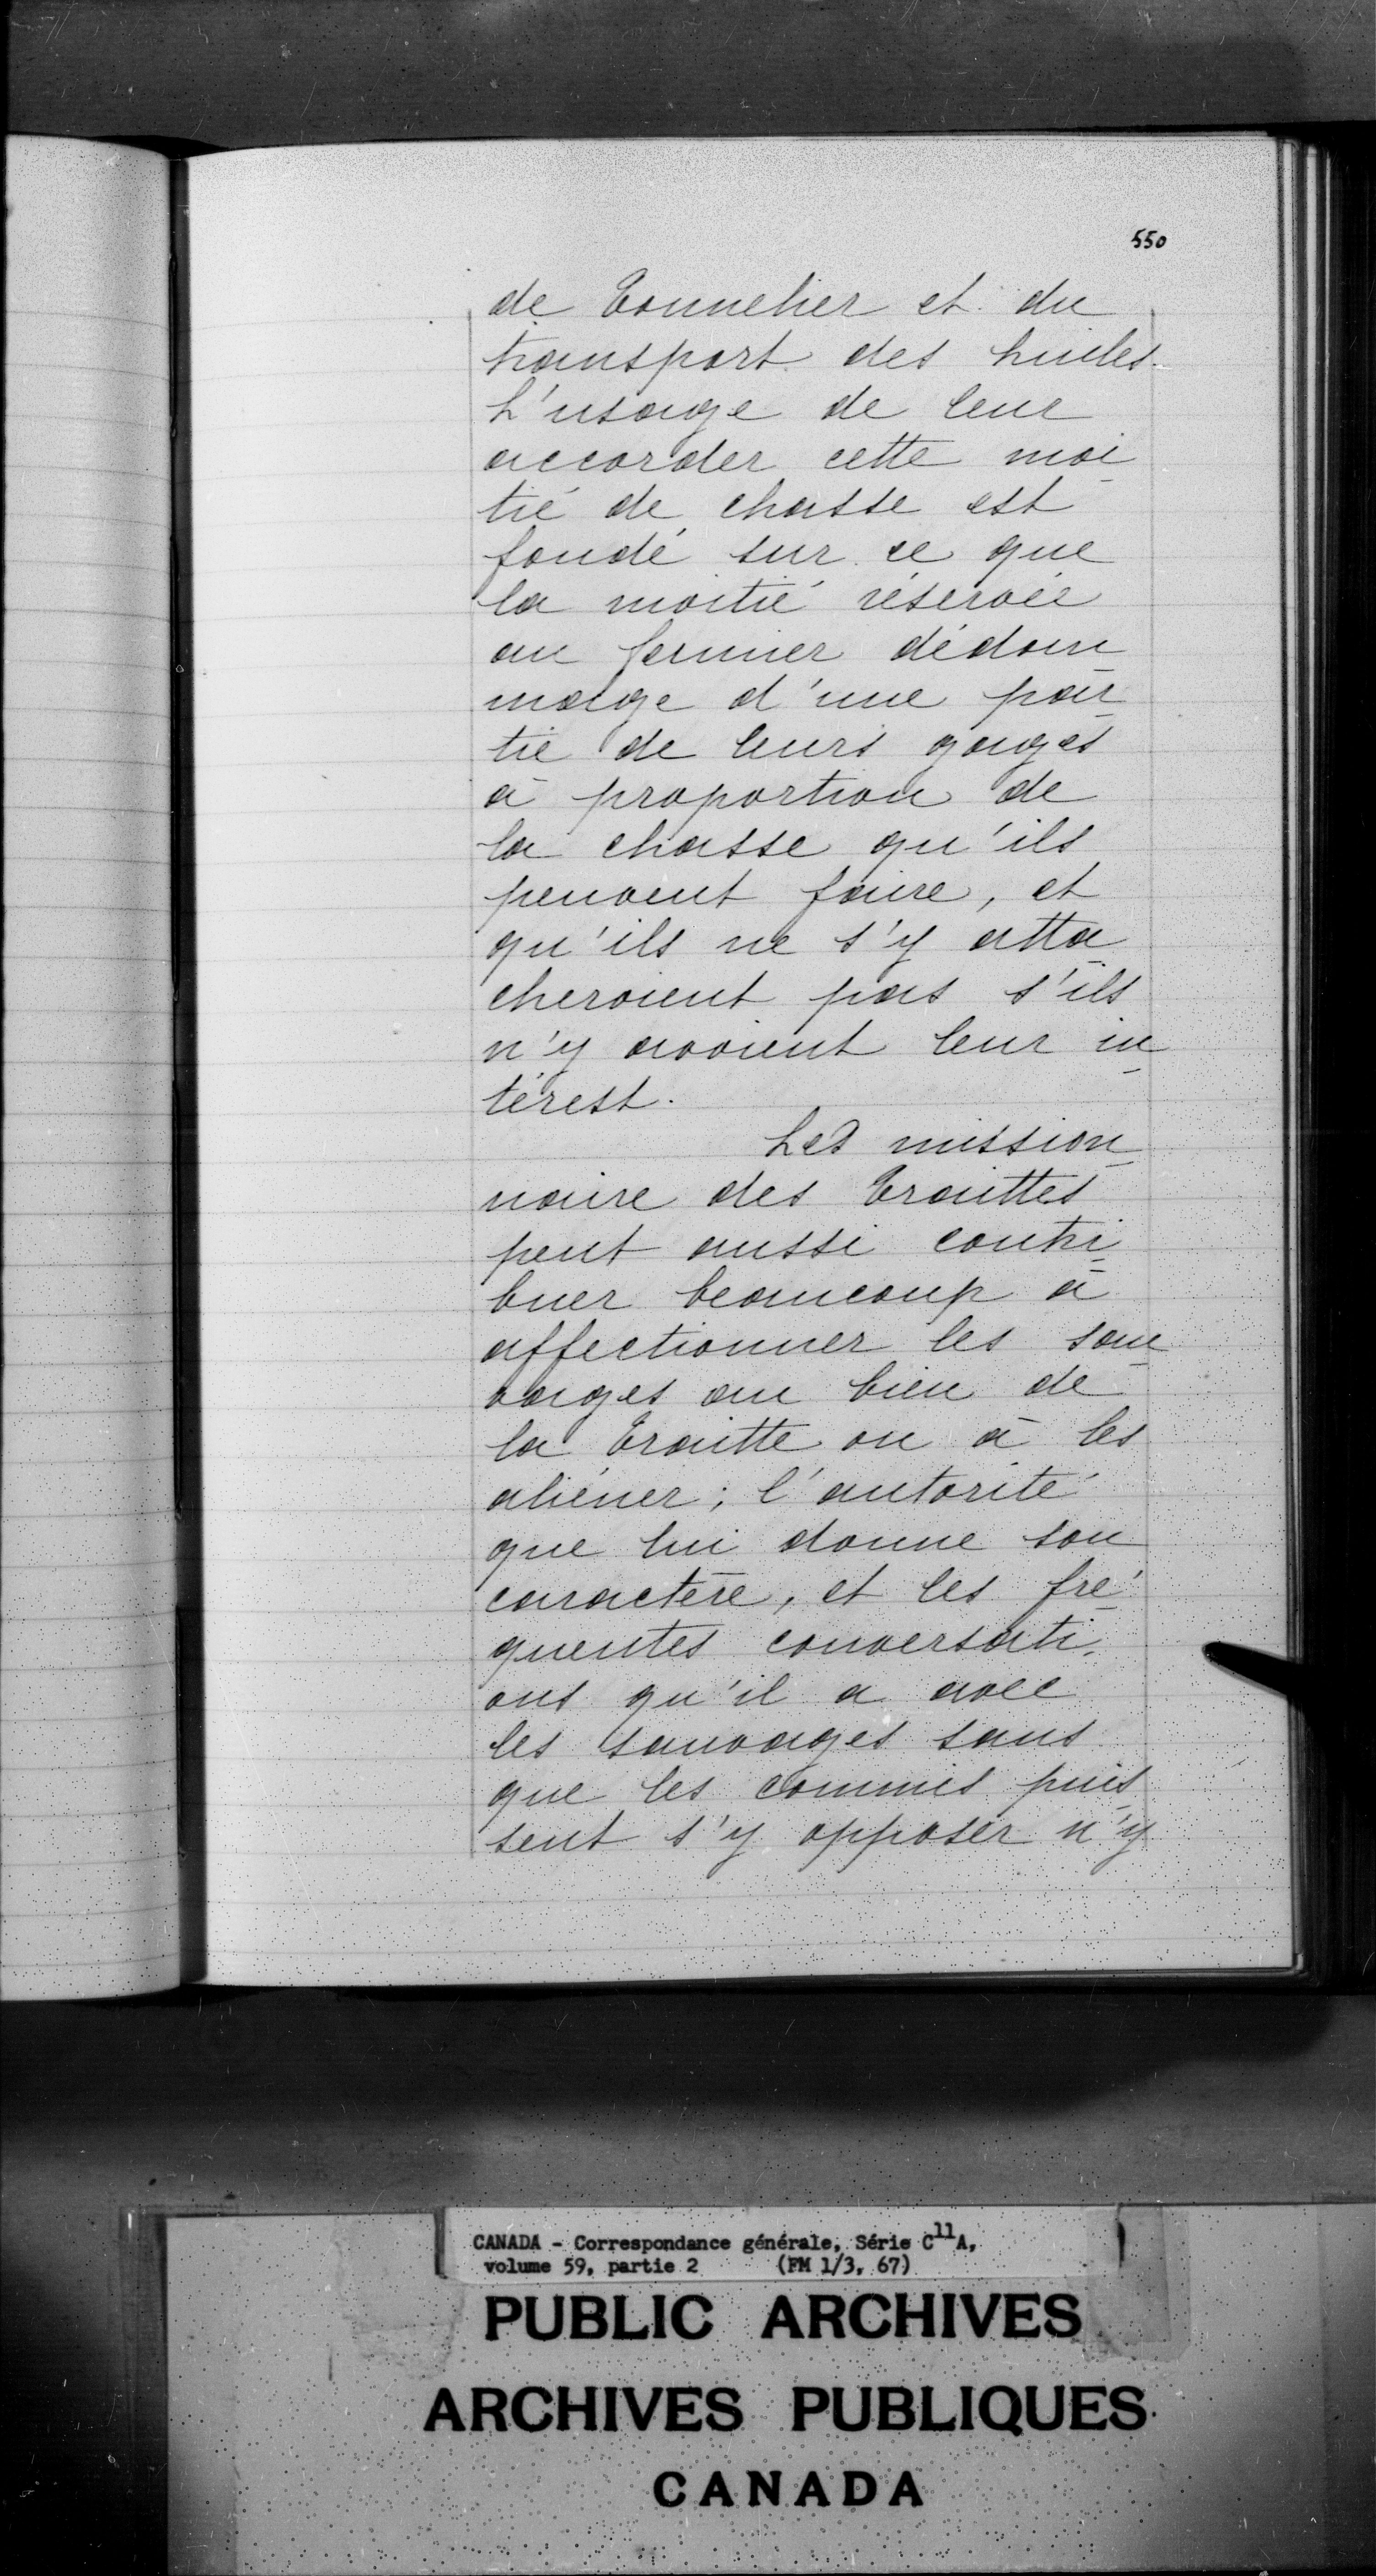 550
de Tonnelier et du
transport des huiles.
L'usage de leur
accorder cette moi
tié de chasse est
fondé sur ce que
la moitié réservée
au fermier dédom
mage d'une par
tie de leurs gages
à proportion de
la chasse qu'ils
peuvent faire, et
qu'ils ne s'y atta
cheroient pas s'ils
n'y avoient leur in
térest.
Les mission
naire des Traittes
peut aussi contri
buer beaucoup à
affectionner les sau
vages au bien de
la Traitte ou à les
aliéner; l'autorité
que lui donne son
caractère, et les fré
quentes conversati
ons qu'il a avec
les sauvages sans
que les commis puis
sent s'y opposer n'y
CANADA - Correspondance générale, Série C11A,
volume 59, partie 2 (FM 1/3, 67)
PUBLIC ARCHIVES
ARCHIVES PUBLIQUES
CANADA